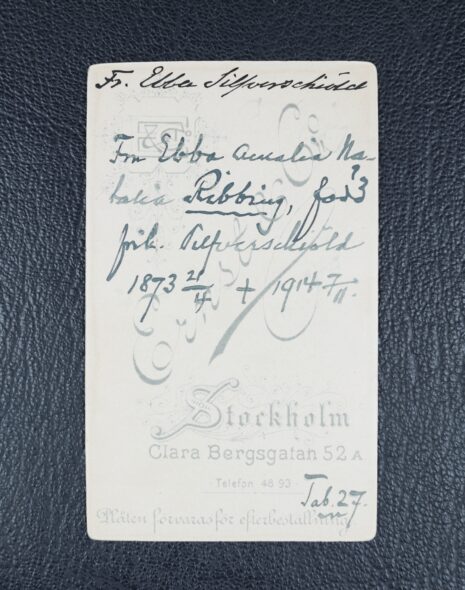 Fr. Ebba Silfverschiöld
Fru Ebba Amalia Na-
talia Ribbing, född
frih. Silfverschiöld
1873 21/4 + 1914 7/11.
Stockholm
Clara Bergsgatan 52 A
Telefon 48 93
Tab. 27.
Plåten förvaras för efterbeställning